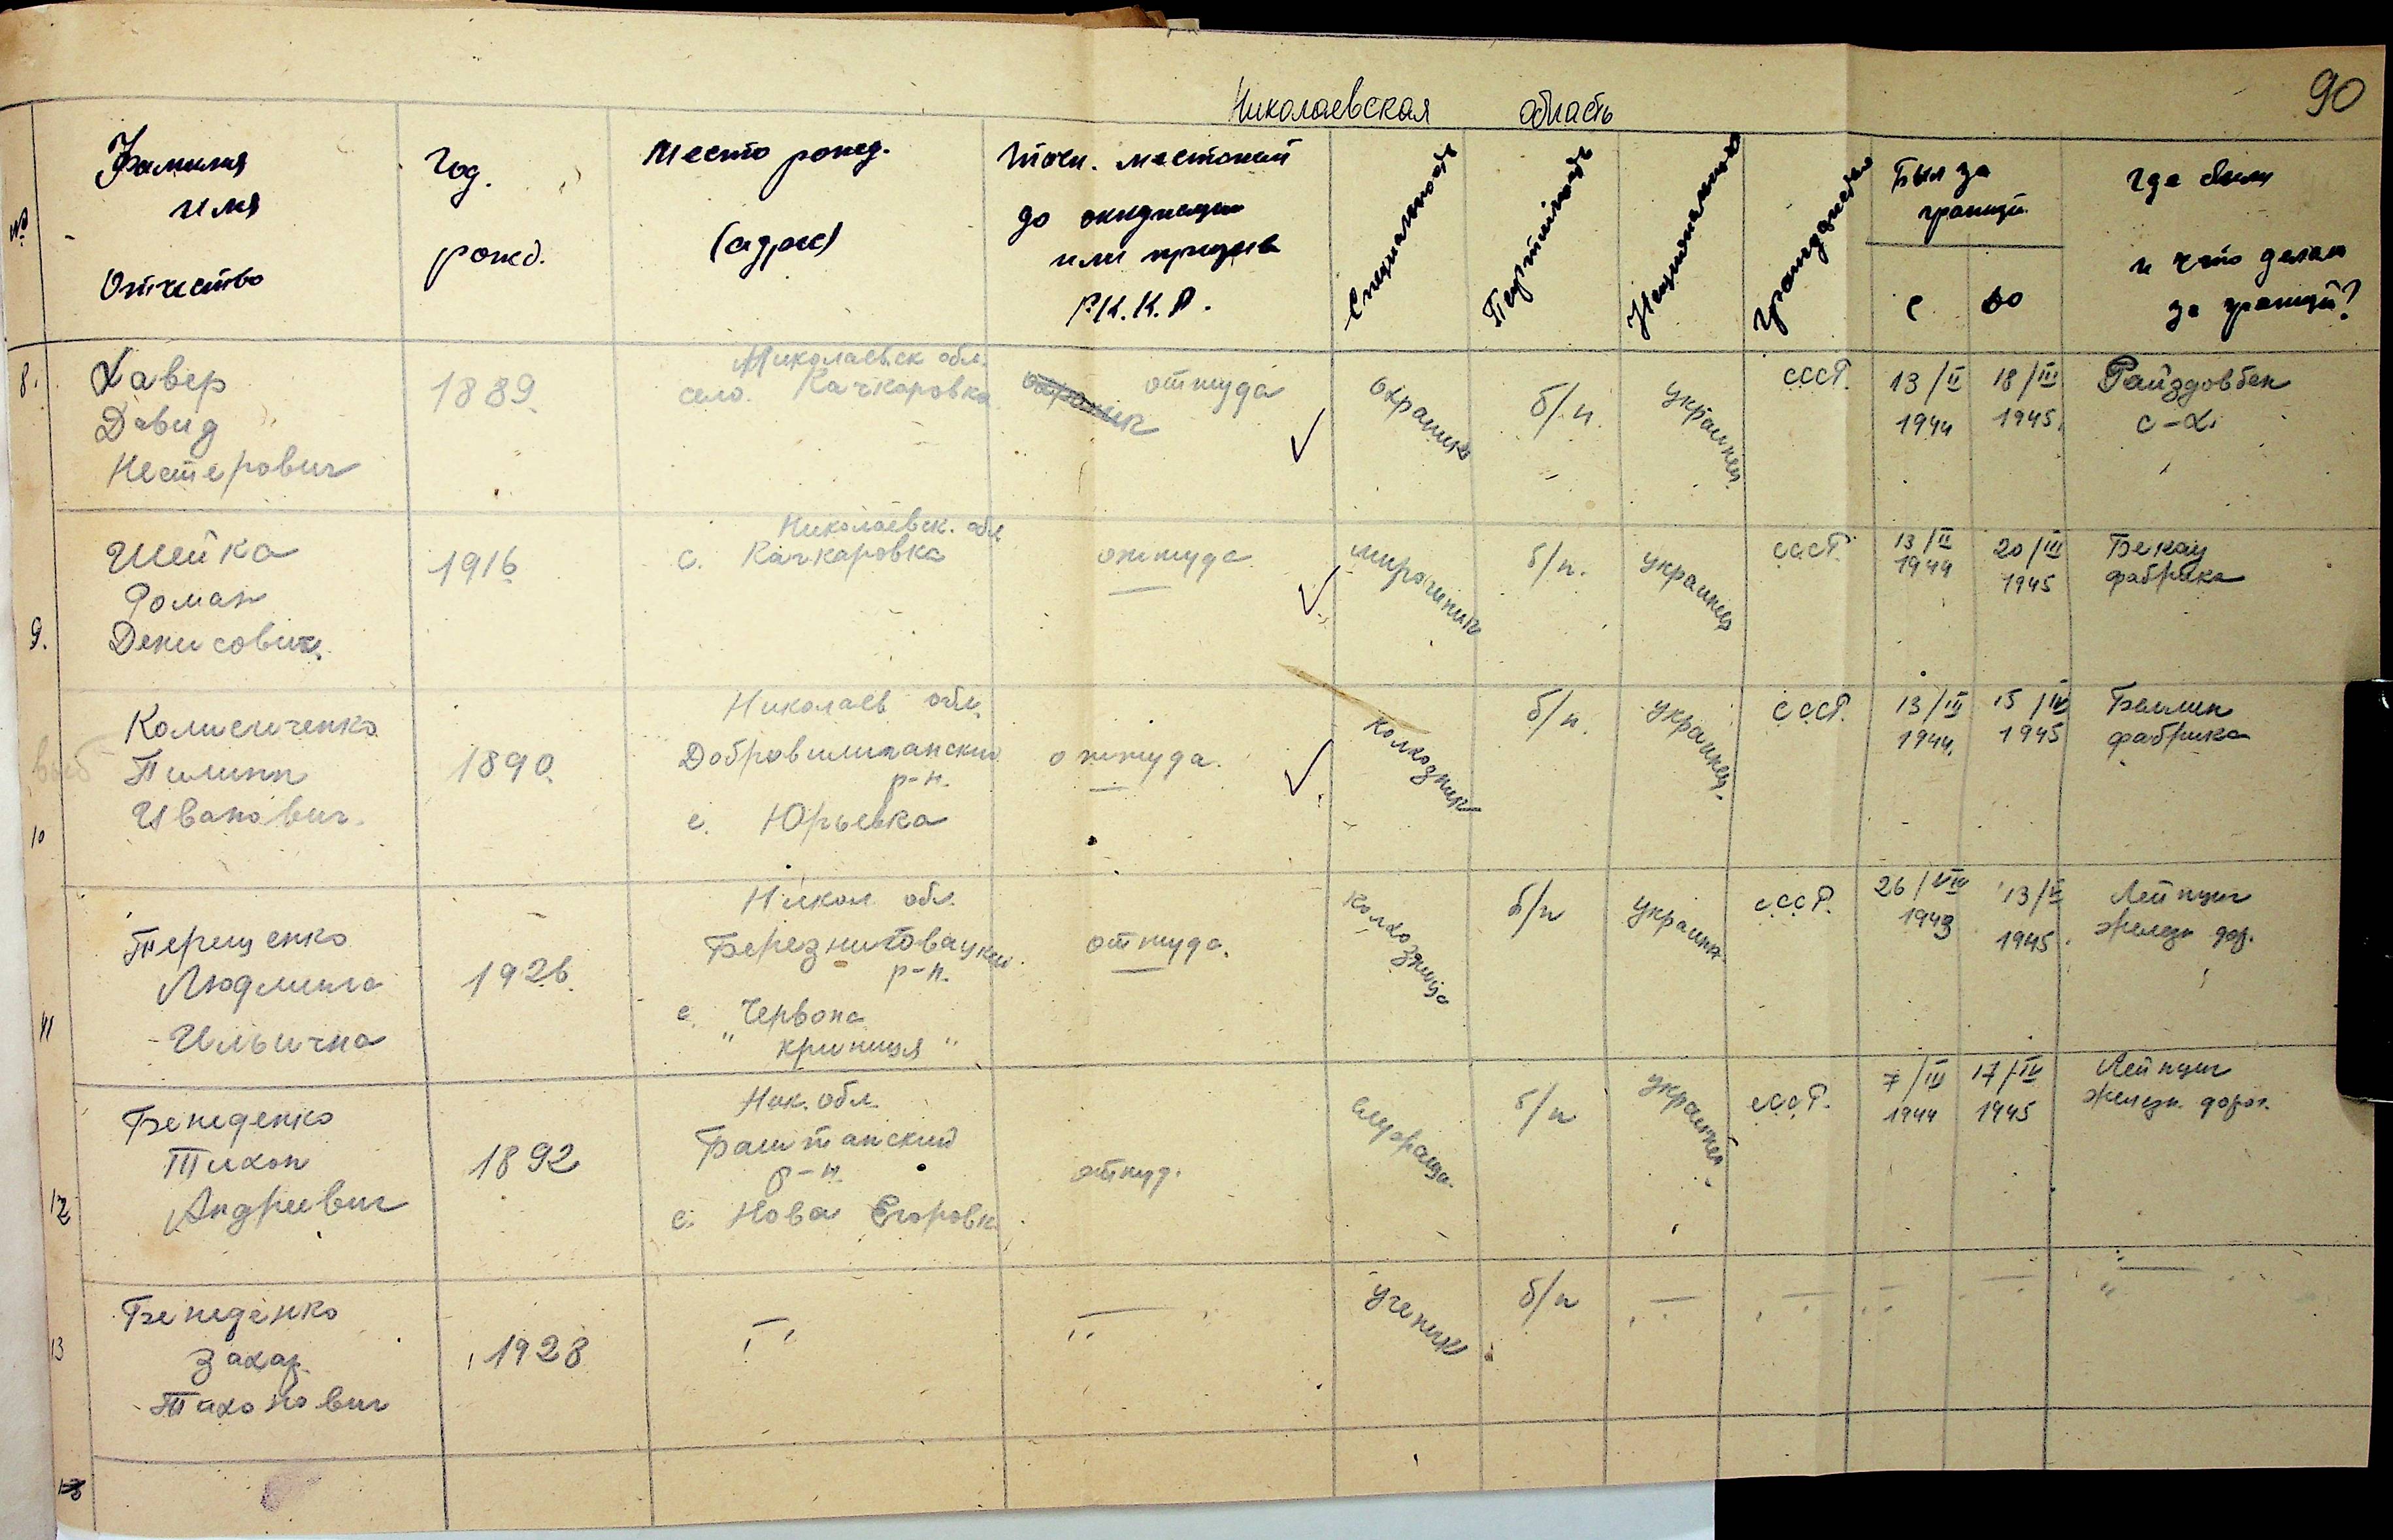 90
Николаевская область
№
Фамилия
имя
Отчество
Год.
рожд.
Место рожд.
(адрес)
точн. местожит
до оккупации
или призыва
Р.К.К.А.
Специальность
Партийность
Национальность
Гражданство
Был за
границей
с
до
где был
и что делал
за границей?
8.
Хавер
Давид
Нестерович
1889.
Николаевск обл.
село. Качкаровка
оттуда
охранник
б/п.
украинец
СССР.
13/II
1944
18/III
1945.
Райздовбен
с-х.
9.
Шейко
Роман
Денисович
1916
Николаевск. обл
с. Качкаровка
оттуда
б/п.
украинец
СССР.
13/II
1944
20/III
1945
Бекау
фабрика
10
Пилипп
Иванович.
1890.
Николаев обл.
р-н.
с. Юрьевка
оттуда.
колхозник
б/п.
украинец.
СССР.
13/III
1944.
15/IV
1945
фабрика
11
Терещенко
Людмила
Ильична
1926.
Никол обл.
Березниговацкий
р-н.
с. "Червона
криница"
оттуда.
колхозница
б/п
украинка
СССР.
26/VIII
1943
13/V
1945.
Лейпциг
железн дор.
12
Бенеденко
Тихон
Андреевич
1892
Ник. обл.
Баштанский
р-н.
с. Нова Егоровк
оттуд.
б/п
украинец.
СССР.
7/III
1944
17/IV
1945
Лейпциг
железн. дорог.
13
Бенеденко
Захар.
Тихонович
1928
-"-
-"-
ученик
б/п
-"-
-"-
-"-
-"-
-"-